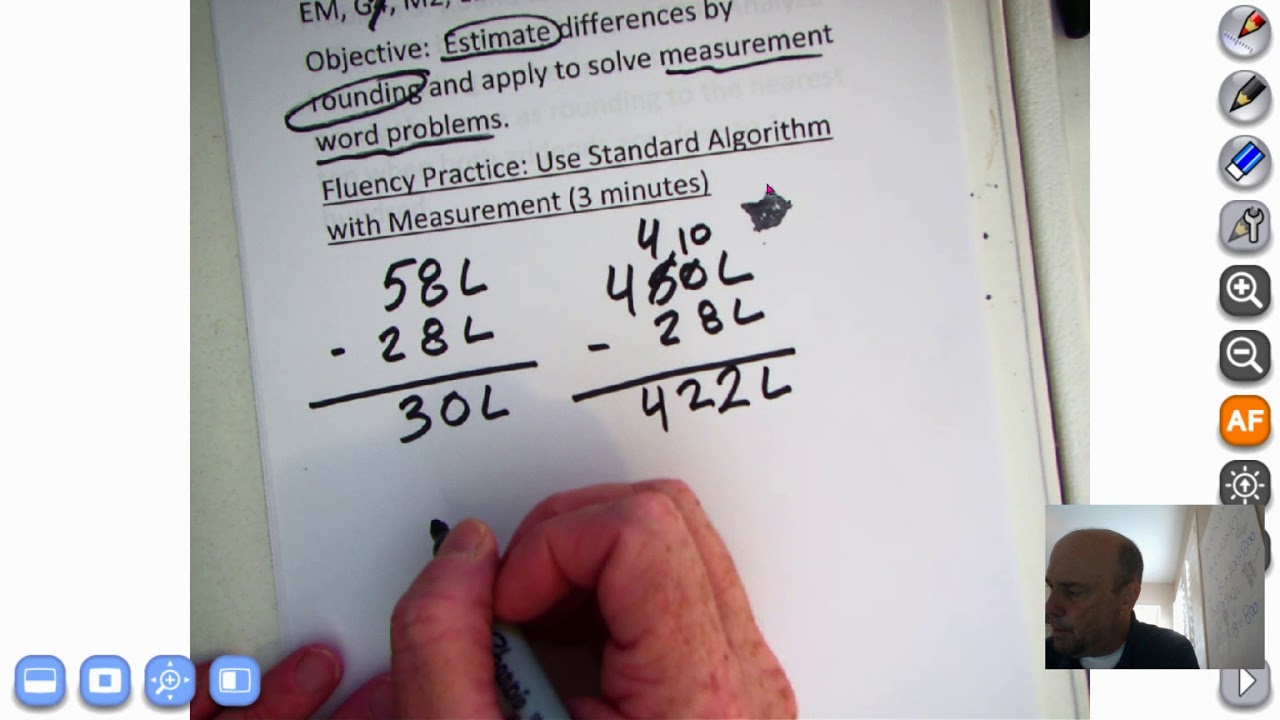 EM, G4, M2,
Objective: Estimate differences by
rounding and apply to solve measurement
word problems.
Fluency Practice: Use Standard Algorithm
with Measurement (3 minutes)
58L
- 28L
30L
4 10
450L
- 28L
422L
AF